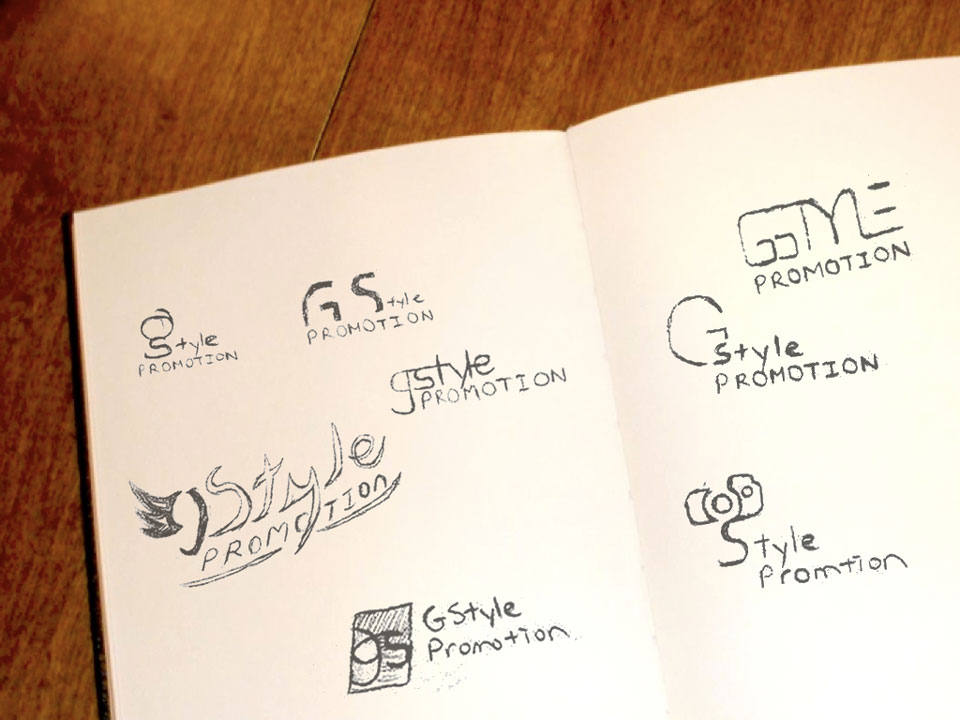 gstyle
PROMOTION
GStyle
PROMOTION
gstyle
PROMOTION
gStyle
PROMOTION
gs
GStyle
Promotion
PROMOTION
Gstyle
PROMOTION
Style
Promtion